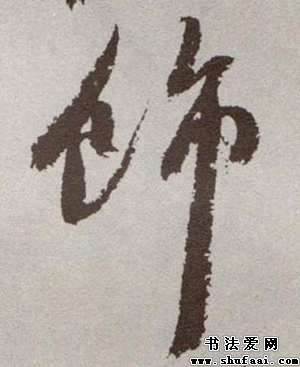 饰
书法爱网
www.shufaai.com